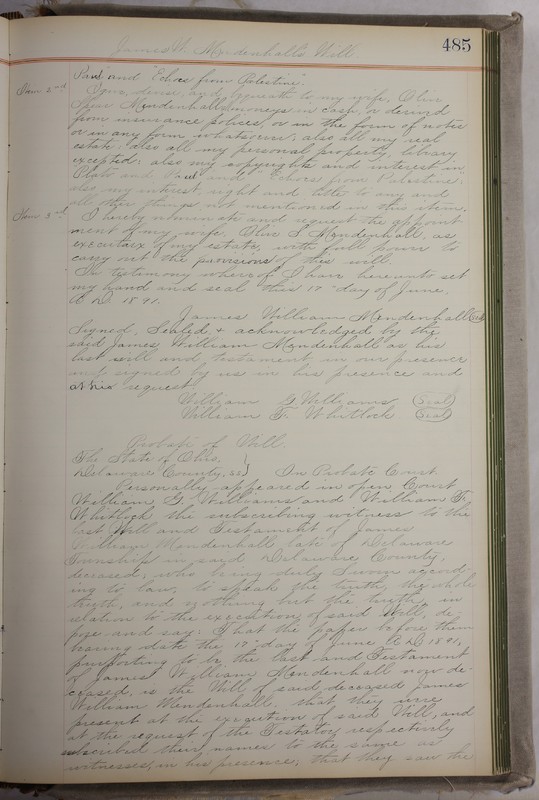 James W. Mendenhall's Will
485
Paul and "Echoes from Palestine".
Item 2nd
I give, devise, and bequeath to my wife, Olive
Mendenhall moneys in cash, or derived
from insurance polices, or in the form of notes
or in any form whatsoever, also all my real
estate; also all my personal property, library
excepted; also my copyrights and interest in
Plato and Paul and "Echoes from Palestine.
also my interest right and title to any and
all other things not mentioned in this item.
Item 3rd
I hereby nominate and request the appoint
ment of my wife, Olive S. Mendenhall, as
executrix of my estate, with full power to
carry out the provisions of this will.
In testimony whereof I have hereunto set
my hand and seal this 17" day of June,
A D. 1891.
James William Mendenhall (seal)
Signed, Sealed & acknowledged by the
said James William Mendenhall as his
last will and testament in our presence
and signed by us in his presence and
at his request
William G. Williams (Seal)
William F. Whitlock (Seal)
Probate of Will
The State of Ohio, }
Delaware County, ss } In Probate Court
Personally appeared in open Court
William G. Williams and William F.
Whitlock the subscribing witness to the
last Will and Testament of James
William Mendenhall late of Delaware
Township in said Delaware County,
deceased, who being duly sworn accord-
ing to law, to speak the truth the whole
truth, and nothing but the truth, in
relation to the execution of said Will, de-
pose and say: That the paper before them
having date the 17" day of June A D 1891,
purporting to be the last and Testament
of James William Mendenhall now de-
ceased, is the Will of said deceased James
William Mendenhall, that they were
present at the execution of said Will, and
at the request of the Testator, respectively
subscribed their names to the same as
witnesses, in his presence; that they saw the